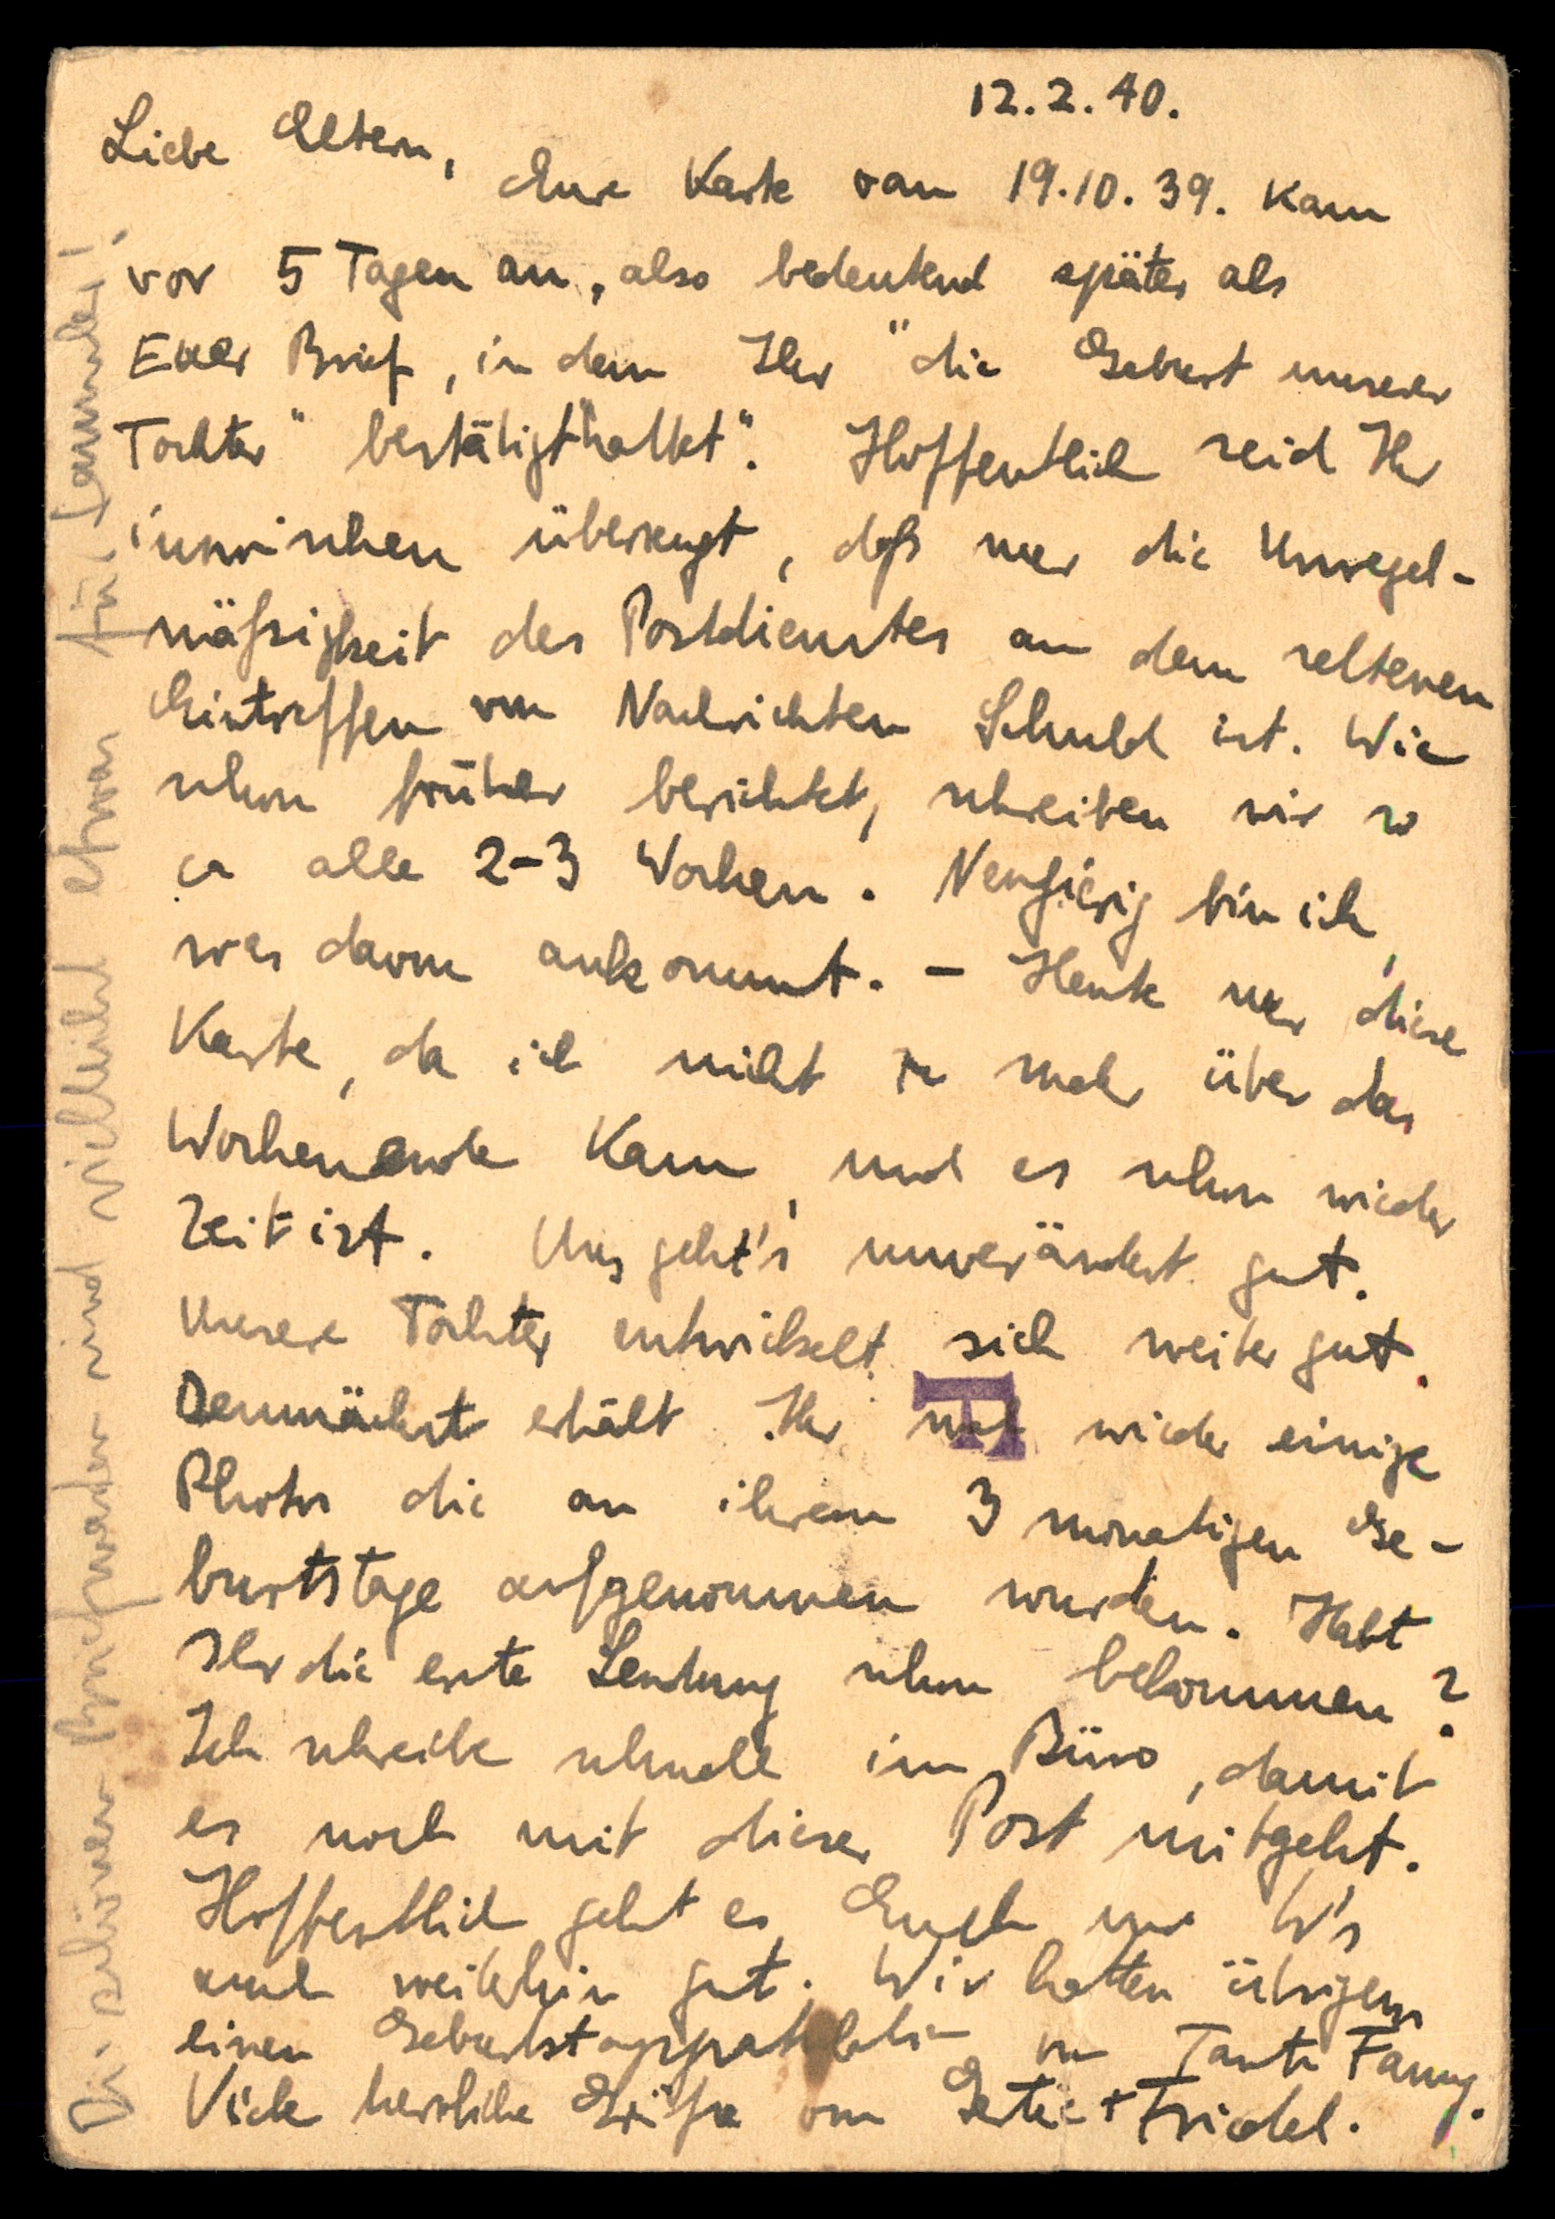 12.2.40.
Liebe Eltern,
Eure Karte vom 19.10.39. kam
vor 5 Tagen an, also bedeutend später als
Euer Brief, in dem Ihr "die Geburt unserer
Tochter" bestätigt "hattet". Hoffentlich seid Ihr
inzwischen überzeugt, daß nur die Unregel-
mäßigkeit des Postdienstes an dem seltenen
Eintreffen von Nachrichten Schuld ist. Wie
schon früher berichtet, schreiben wir so
ca alle 2-3 Wochen. Neugierig bin ich,
was davon ankommt. - Heute nur diese
Karte, da ich nicht mehr über das
Wochenende kam, und es schon wieder
Zeit ist. Uns geht's unverändert gut.
Unsere Tochter entwickelt sich weiter gut.
Demnächst erhält Ihr wieder einige
Photos die an ihrem 3 monatigen Ge-
burtstage aufgenommen wurden. Habt
Ihr die erste Sendung schon bekommen?
Ich schreibe schnell im Büro, damit
es noch mit dieser Post mitgeht.
Hoffentlich geht es Euch W's
auch weiterhin gut. Wir hatten übrigens
einen von Tante Fanny.
Viele herzliche Grüße von Gertie + Friedel.
Die schönen Briefmarken sind vielleicht etwas für Sammler!